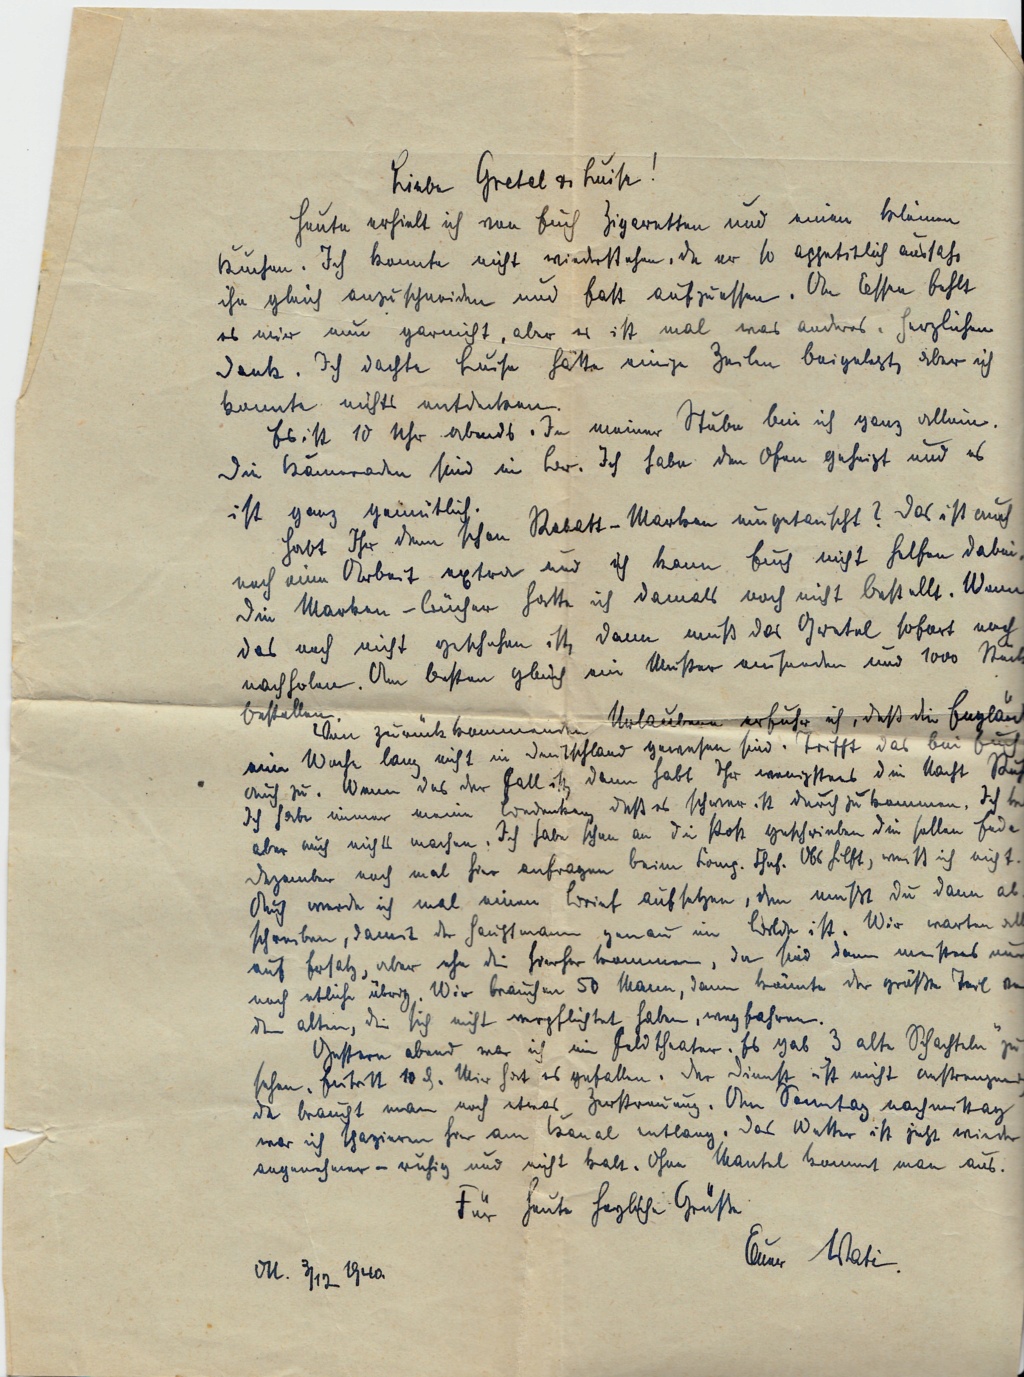 Liebe Gretel & Luise!
Heute erhielt ich von Euch Zigaretten und einen kleinen
Kuchen. Ich konnte nicht wiederstehen, da er so appetitlich aussah,
ihn gleich anzuschneiden und fast aufzuessen. An Essen fehlt
es mir nun garnicht, aber es ist mal was anderes. Herzlichen
Dank. Ich dachte Luise hätte einige Zeilen beigelegt, aber ich
konnte nichts entdecken.
Es ist 10 Uhr abends. In meiner Stube bin ich ganz allein.
Die Kameraden sind in Ku. Ich habe den Ofen geheizt und es
ist ganz gemütlich.
Habt Ihr denn schon Rabatt-Marken eingetauscht? Das ist auch
noch eine Arbeit extra und ich kann Euch nicht helfen dabei.
Die Marken-Bücher hatte ich damals noch nicht bestellt. Wenn
das noch nicht geschehen ist, dann muß das Gretel sofort noch
nachholen. Am besten gleich ein Muster einsenden und 1000 Stück
bestellen.
Von zurückkommenden Urlaubern erfuhr ich, daß die Englän
eine Woche lang nicht in Deutschland gewesen sind. Trifft das bei Euch
auch zu. Wenn das der Fall ist, dann habt Ihr wenigstens die Nacht Ruh
Ich habe immer meine Bedenken, daß es schwer ist durchzukommen. Ich ka
aber auch nichts machen. Ich habe schon an die Post geschrieben die sollen Ende
Dezember noch mal hier anfragen beim Komp. Chef. Obs hilft, weiß ich nicht.
Auch werde ich mal einen Brief aufsetzen, den mußt Du dann ab
schreiben, damit der Hauptmann genau im Bilde ist. Wir warten all
auf Ersatz, aber ehe die hierher kommen, da sind dann meistens nur
noch etliche übrig. Wir brauchen 50 Mann, dann könnte der größte Teil von
den alten, die sich nicht verpflichtet haben, wegfahren.
Gestern abend war ich im Feldtheater. Es gab 3 alte Schachteln zu
sehen. Eintritt 10 d. Mir hat es gefallen. Der Dienst ist nicht anstrengend,
da braucht man noch etwas Zerstreuung. Am Sonntag nachmittag
war ich spazieren hier am Kanal entlang. Das Wetter ist jetzt wieder
angenehmer - ruhig und nicht kalt. Ohne Mantel kommt man aus.
Für heute herzliche Grüße
Euer Vati.
M. 3/12 1940